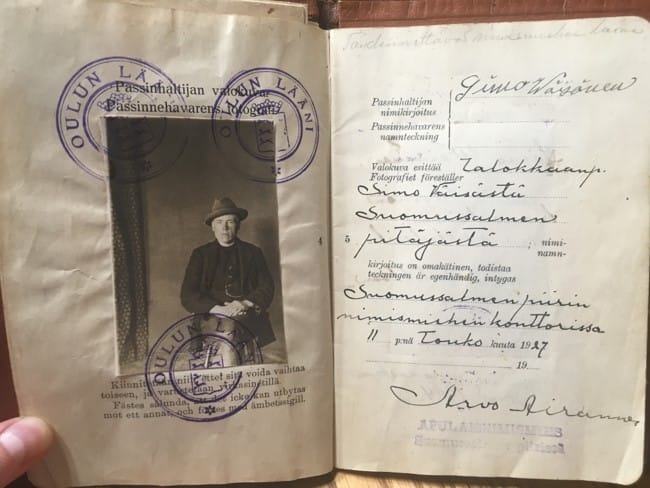 OULUN LÄÄNI
OULUN LÄÄNI
Passinhaltijan valokuva.
Passinnehavarens fotografi.
OULUN LÄÄNI
Kiinnitettävä niin, ettei sitä voida vaihtaa
toiseen, ja varustetaan virkasinetillä.
Fästes sålunda, att det icke kan utbytas
mot ett annat, och förses med ämbetssigill.
4
Passinhaltijan
nimikirjoitus
Simo Väisänen
Passinnehavarens
namnteckning
Valokuva esittää talokkaanp.
Fotografiet föreställer
Simo Väisästä
Suomussalmen
5 pitäjästä ; nimi-
namn-
kirjoitus on omakätinen, todistaa
teckningen är egenhändig, intygas
Suomussalmen piirin
nimismiehen konttorissa
11 p:nä Touko kuuta 1927
19
Arvo Airannes
APULAISNIMISMIES